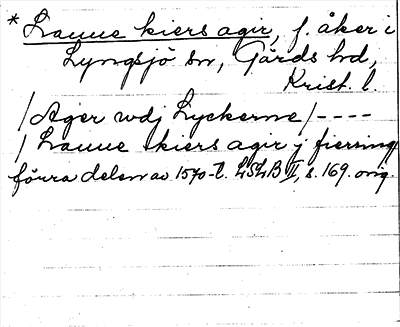 * Laune kiers agir, f. åker i
Lyngsjö sn, Gärds hd,
Krist. l.
/ Ager wdj Lyckerne / - - - -
/ Laune kiers agir j fiersing
förra delen av 1570-t. LSLB II, s. 169. orig.